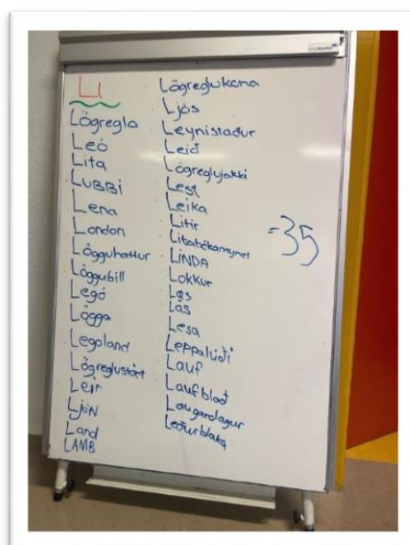 Ll
Lögregla
Leó
Lita
LUBBi
Lena
London
Lögguhattur
Löggubíll
Legó
Lögga
Legoland
Leir
Ljón
Land
LAMB
Lögreglukona
Ljós
Leynistaður
Leið
Lögreglujakki
Lest
Leika
Litir
LiNDA
Lokkur
Lás
Lesa
Leppalúði
Lauf
Laufblað
Laugardagur
Leðurblaka
=35